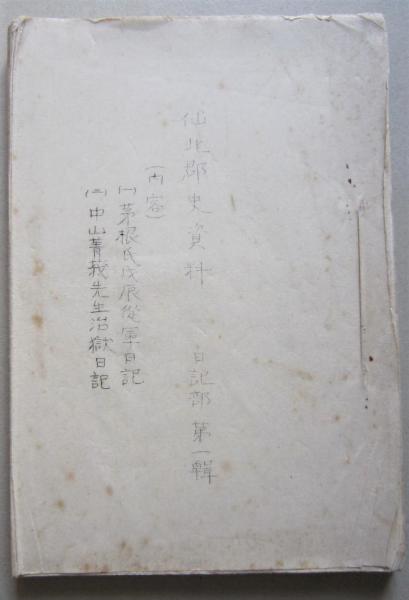 仙北郡史資料 日記部 第一輯
(内容)
(一)茅根氏戊辰従軍日記
(二)中山菁莪先生治獄日記